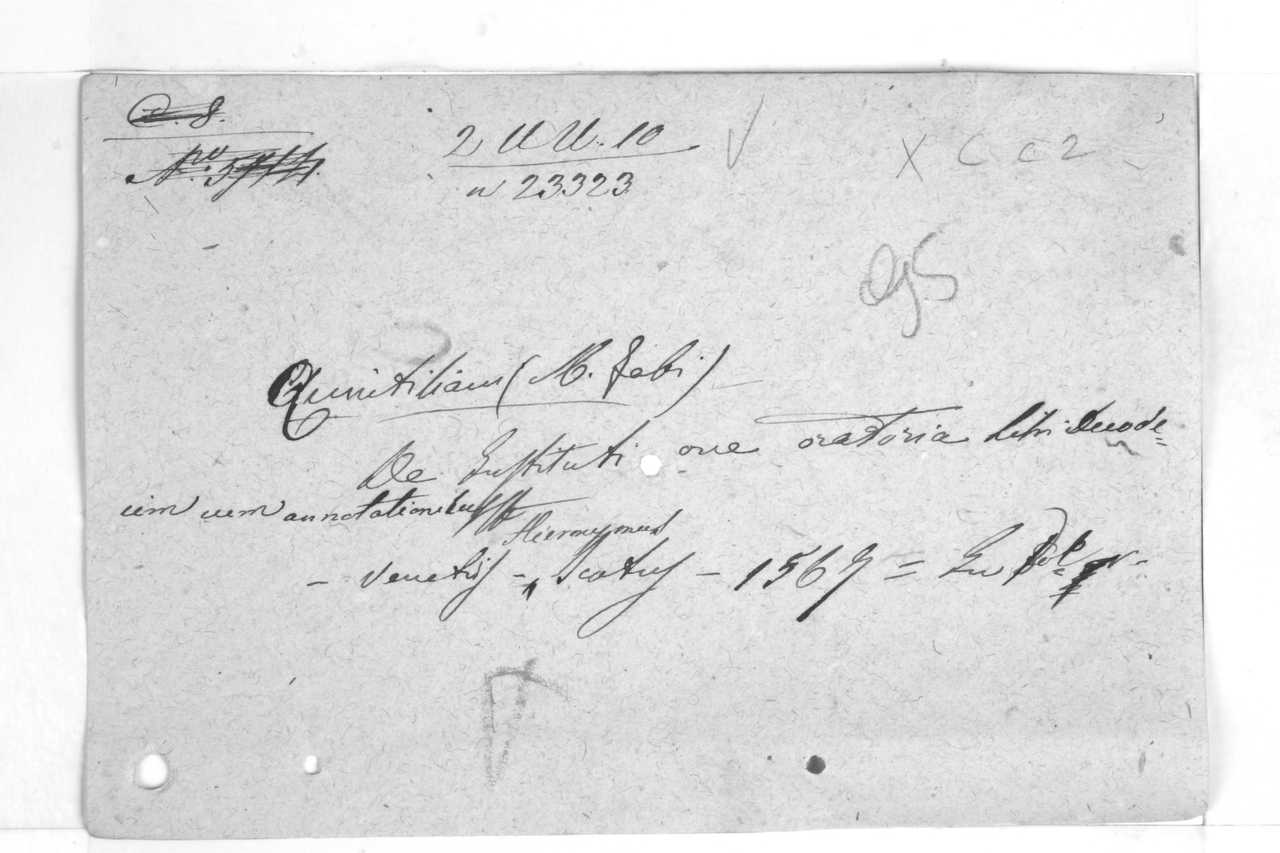 C. 8.
2 UU. 10
X C c 2
N.ro
n 23323
Quintiliani (M. Fabi)
De Institutione oratoria Libri duode=
cim cum annotationibus
Hieronymus
- Venetijs - Scotus - 1567 = In fol.